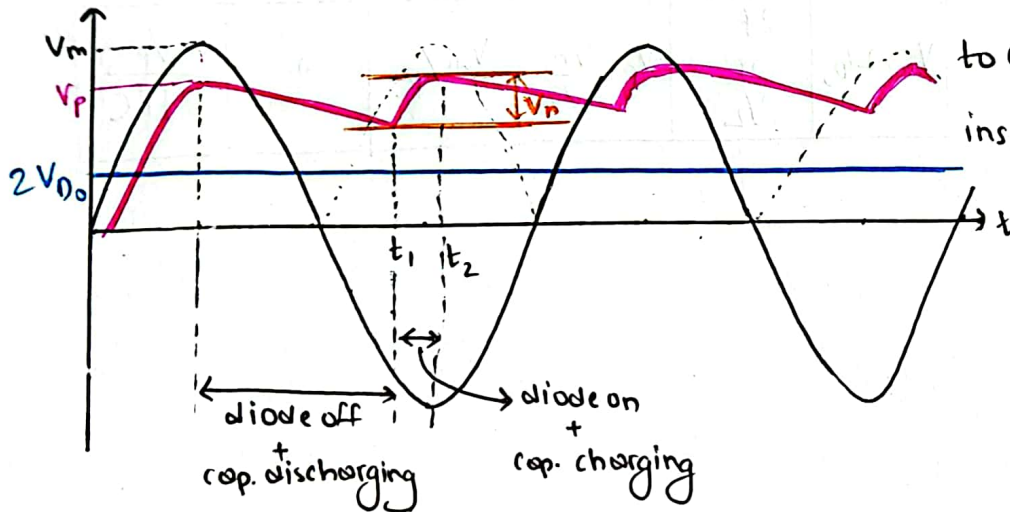 Vm
to
Vp
Vr
ins
2VDo
t
t1
t2
diode off
+
cap. discharging
diode on
+
cap. charging